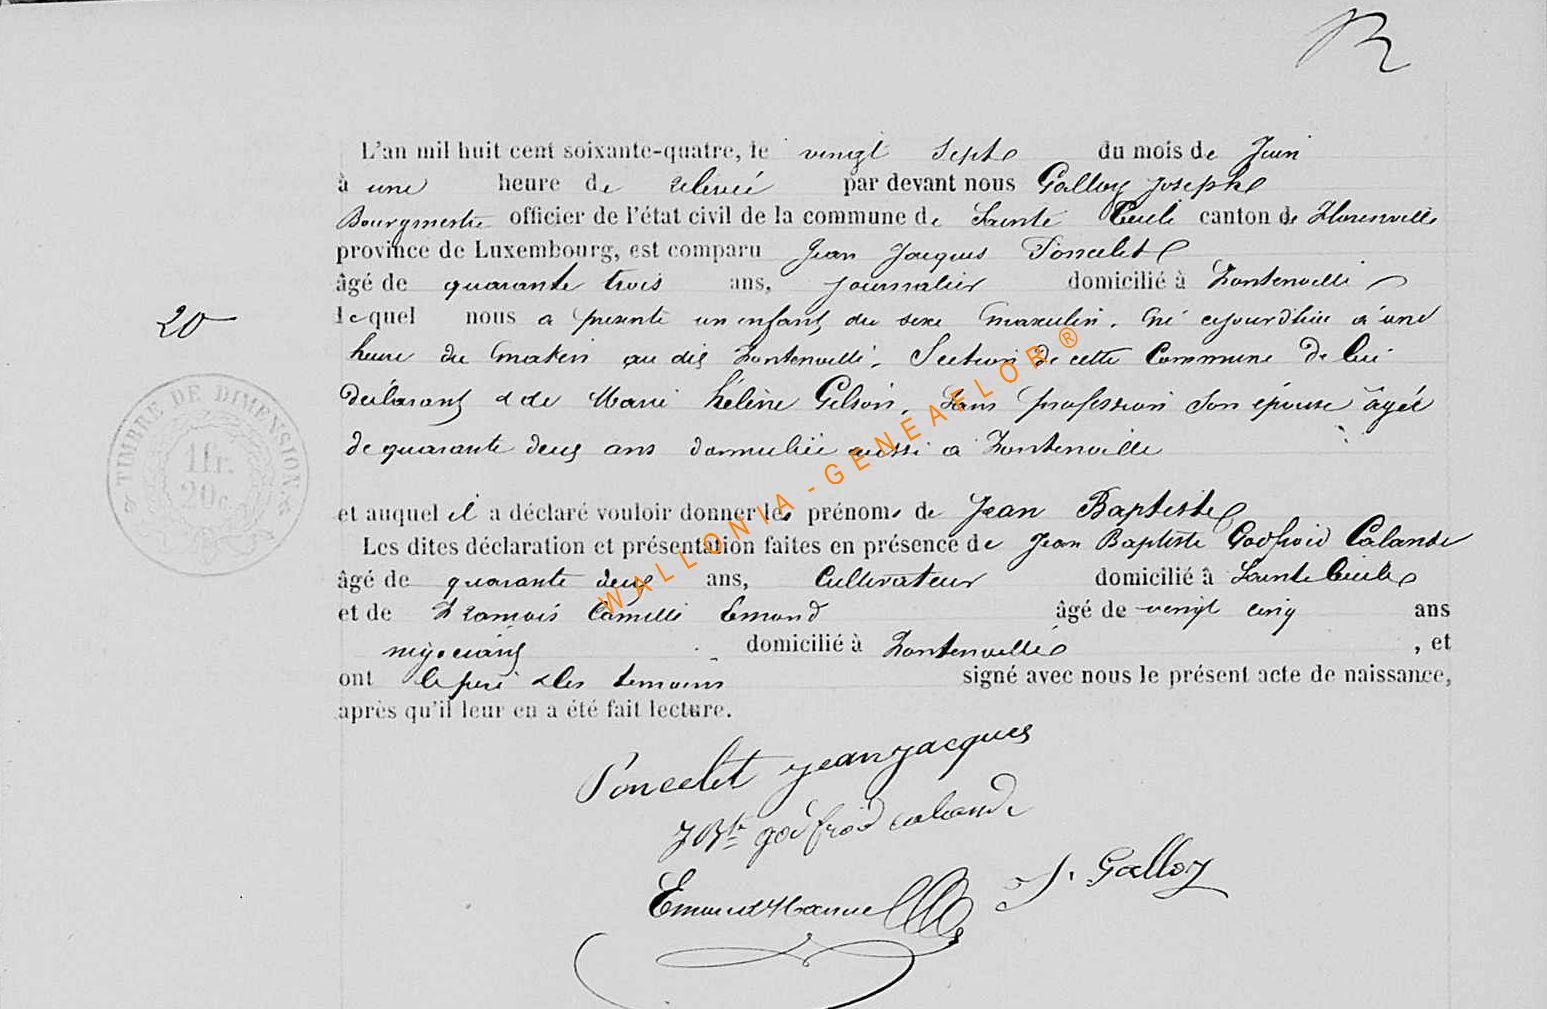 L'an mil huit cent soixante-quatre, le vingt sept du mois de Juin
à une heure de relevée par devant nous Galloy Joseph
Bourgmestre officier de l'état civil de la commune de Sainte Cecile canton de Florenville
province de Luxembourg, est comparu Jean Jacques Poncelet
âgé de quarante trois ans, journalier domicilié à Fontenoille
lequel nous a présenté un enfant du sexe masculin, né cejourd'hui à une
20
heure du matin au dit Fontenoille, Section de cette Commune de lui
déclarant & de Marie hélène Gelson, Sans profession Son épouse âgée
de quarante deux ans domiciliée aussi à Fontenoille
TIMBRE DE DIMENSION
1fr.
20c.
et auquel il a déclaré vouloir donner les prénoms de Jean Baptiste
Les dites déclaration et présentation faites en présence de Jean Baptiste Godfroid Calande
âgé de quarante deux ans, Cultivateur domicilié à Sainte Cecile
et de François Camille Emond âgé de vingt cinq ans
négociant domicilié à Fontenoille, et
ont le père & les témoins signé avec nous le présent acte de naissance,
après qu'il leur en a été fait lecture.
Poncelet jean jacques
JBte godfroid calande
Emond J. Galloy
WALLONIA - GENEAFLOR ®